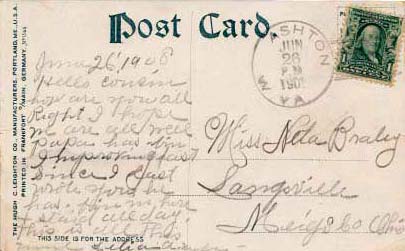 Post Card.
THE HUGH C. LEIGHTON CO., MANUFACTURERS, PORTLAND, ME., U.S.A.
PRINTED IN FRANKFORT O/MAIN, GERMANY
ASHTON
JUN
26
PM
190
W VA
June 26, 1908
Hello cousin
how are you all
Right I hope
we are all well
papa has
Improving fast
Since I last
wrote you he
has
all day.
this is
Miss Neta Braley
Langsville
Meigs Co Ohio
THIS SIDE IS FOR THE ADDRESS